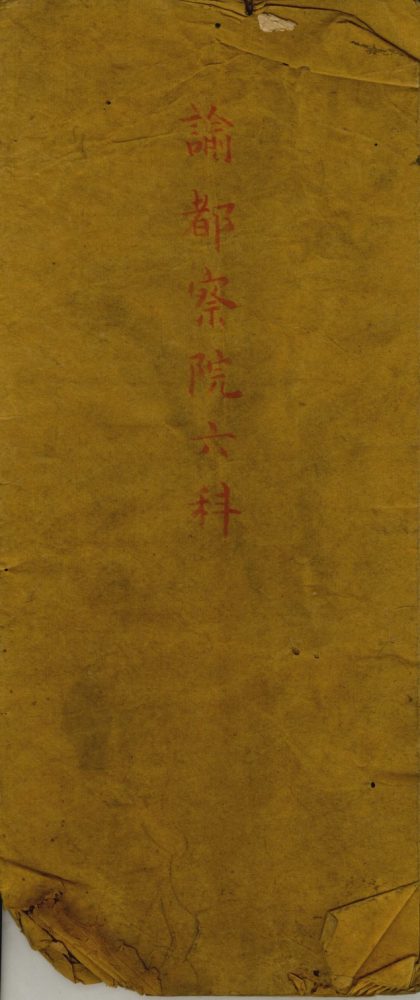 諭都察院六科